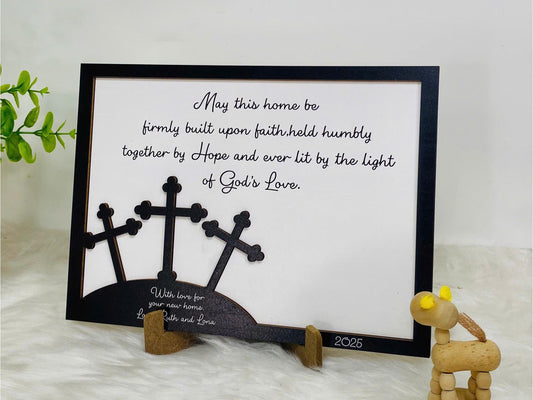 May this home be
firmly built upon faith,held humbly
together by Hope and ever lit by the light
of God's Love.
With love for
your new home.
Ruth and Lona
2025